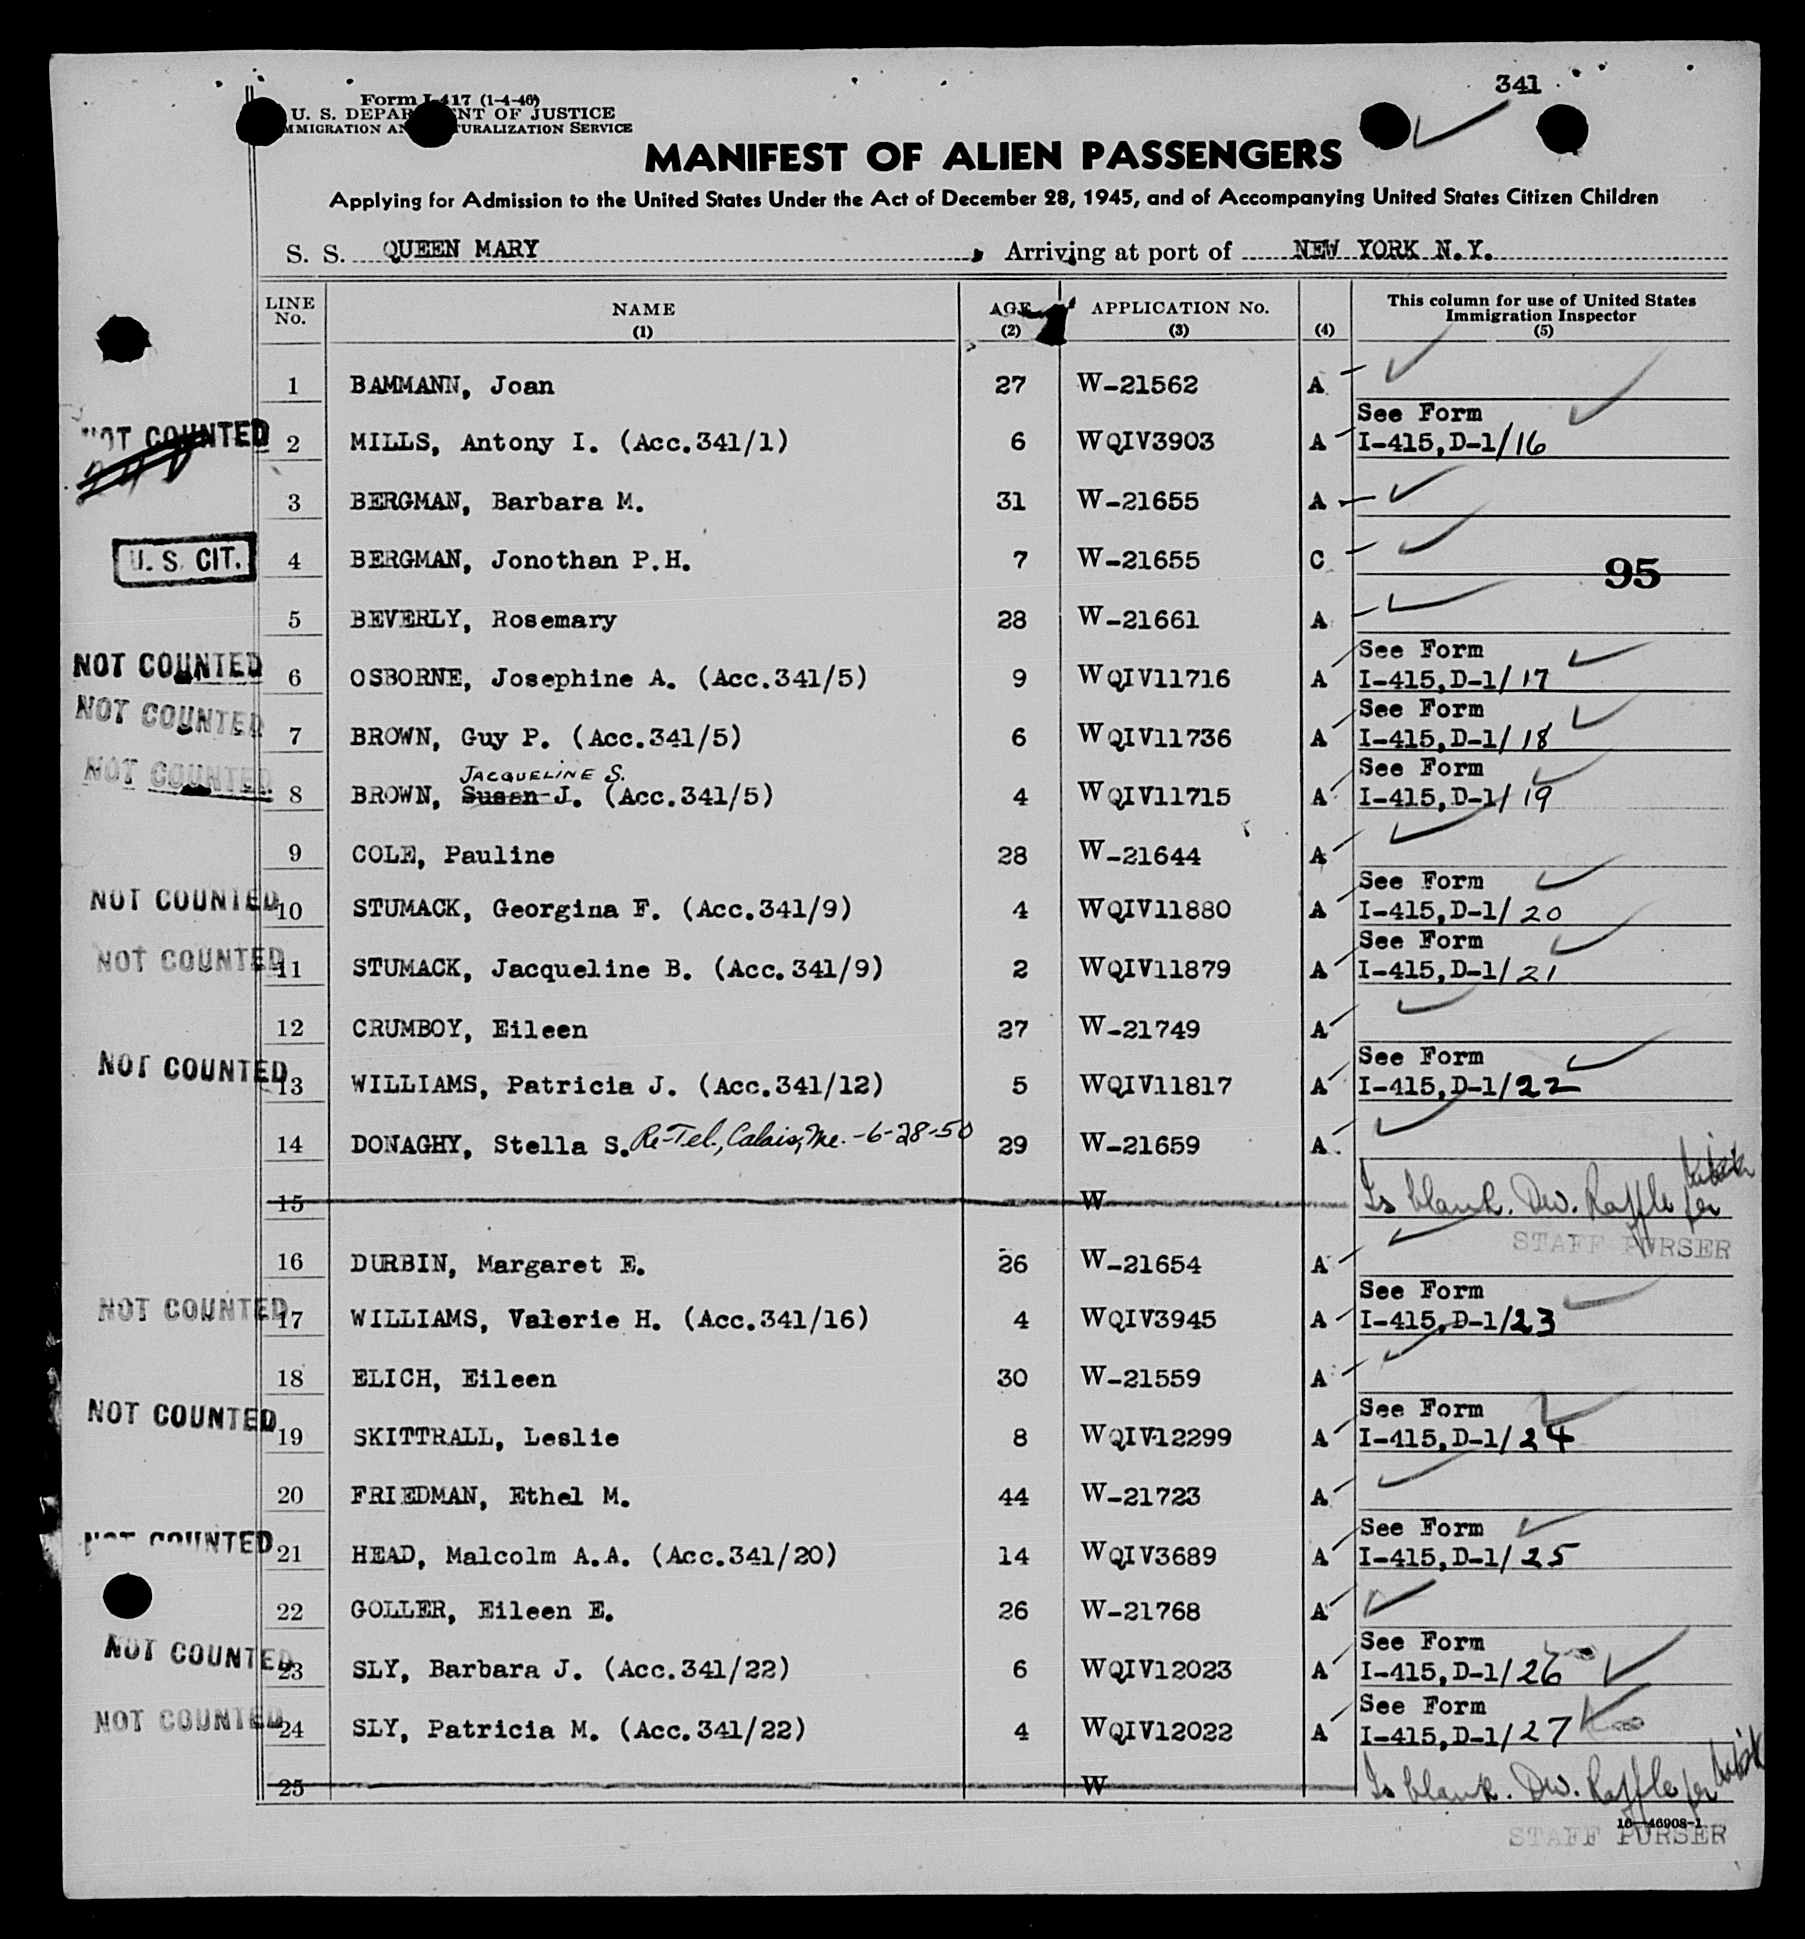 341
Form I-417 (1-4-46)
U. S. DEPARTMENT OF JUSTICE
IMMIGRATION AND NATURALIZATION SERVICE
MANIFEST OF ALIEN PASSENGERS
Applying for Admission to the United States Under the Act of December 28, 1945, and of Accompanying United States Citizen Children
S. S. QUEEN MARY, Arriving at port of NEW YORK N.Y.
LINE No. NAME (1) AGE (2) APPLICATION No. (3) (4) This column for use of United States Immigration Inspector (5)
1 BAMMANN, Joan 27 W-21562 A
NOT COUNTED 2 MILLS, Antony I. (Acc.341/1) 6 WQIV3903 A See Form I-415,D-1/16
3 BERGMAN, Barbara M. 31 W-21655 A
U. S. CIT. 4 BERGMAN, Jonothan P.H. 7 W-21655 C
95
5 BEVERLY, Rosemary 28 W-21661 A
NOT COUNTED 6 OSBORNE, Josephine A. (Acc.341/5) 9 WQIV11716 A See Form I-415,D-1/17
NOT COUNTED 7 BROWN, Guy P. (Acc.341/5) 6 WQIV11736 A See Form I-415,D-1/18
JACQUELINE S.
NOT COUNTED 8 BROWN, Susan J. (Acc.341/5) 4 WQIV11715 A See Form I-415,D-1/19
9 COLE, Pauline 28 W-21644 A
NOT COUNTED 10 STUMACK, Georgina F. (Acc.341/9) 4 WQIV11880 A See Form I-415,D-1/20
NOT COUNTED 11 STUMACK, Jacqueline B. (Acc.341/9) 2 WQIV11879 A See Form I-415,D-1/21
12 CRUMBOY, Eileen 27 W-21749 A
NOT COUNTED 13 WILLIAMS, Patricia J. (Acc.341/12) 5 WQIV11817 A See Form I-415,D-1/22
14 DONAGHY, Stella S. Re-Tel., Calais, Me. -6-28-50 29 W-21659 A
15 W Is blank. Dw. Raffle for
STAFF PURSER
16 DURBIN, Margaret E. 26 W-21654 A
NOT COUNTED 17 WILLIAMS, Valerie H. (Acc.341/16) 4 WQIV3945 A See Form I-415,D-1/23
18 ELICH, Eileen 30 W-21559 A
NOT COUNTED 19 SKITTRALL, Leslie 8 WQIV12299 A See Form I-415,D-1/24
20 FRIEDMAN, Ethel M. 44 W-21723 A
NOT COUNTED 21 HEAD, Malcolm A.A. (Acc.341/20) 14 WQIV3689 A See Form I-415,D-1/25
22 GOLLER, Eileen E. 26 W-21768 A
NOT COUNTED 23 SLY, Barbara J. (Acc.341/22) 6 WQIV12023 A See Form I-415,D-1/26
NOT COUNTED 24 SLY, Patricia M. (Acc.341/22) 4 WQIV12022 A See Form I-415,D-1/27
25 W Is blank. Dw. Raffle for
16—46908-1
STAFF PURSER